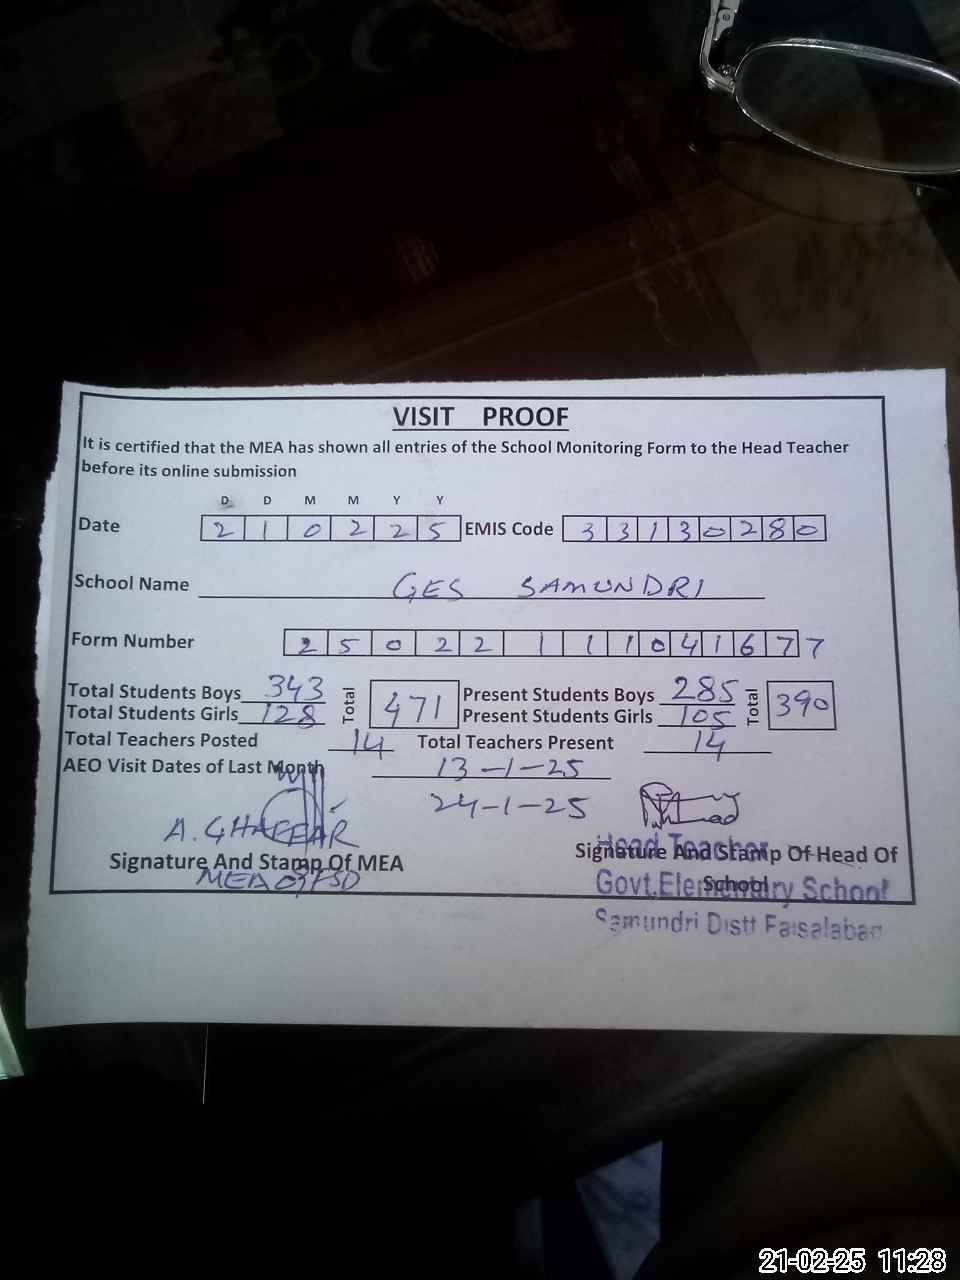 VISIT PROOF
It is certified that the MEA has shown all entries of the School Monitoring Form to the Head Teacher
before its online submission
D D M M Y Y
Date 2 1 0 2 2 5 EMIS Code 3 3 1 3 0 2 8 0
School Name GES SAMUNDRI
Form Number 2 5 0 2 2 1 1 1 0 4 1 6 7 7
Total Students Boys 343 Total 471 Present Students Boys 285 Total 390
Total Students Girls 128 Present Students Girls 105
Total Teachers Posted 14 Total Teachers Present 14
AEO Visit Dates of Last Month 13-1-25
24-1-25
A. GHAFFAR
Signature And Stamp Of MEA Signature And Stamp Of Head Of
School
MEA 09 FSD
Head Teacher
Govt.Elementary School
Samundri Distt Faisalabad
21-02-25 11:28